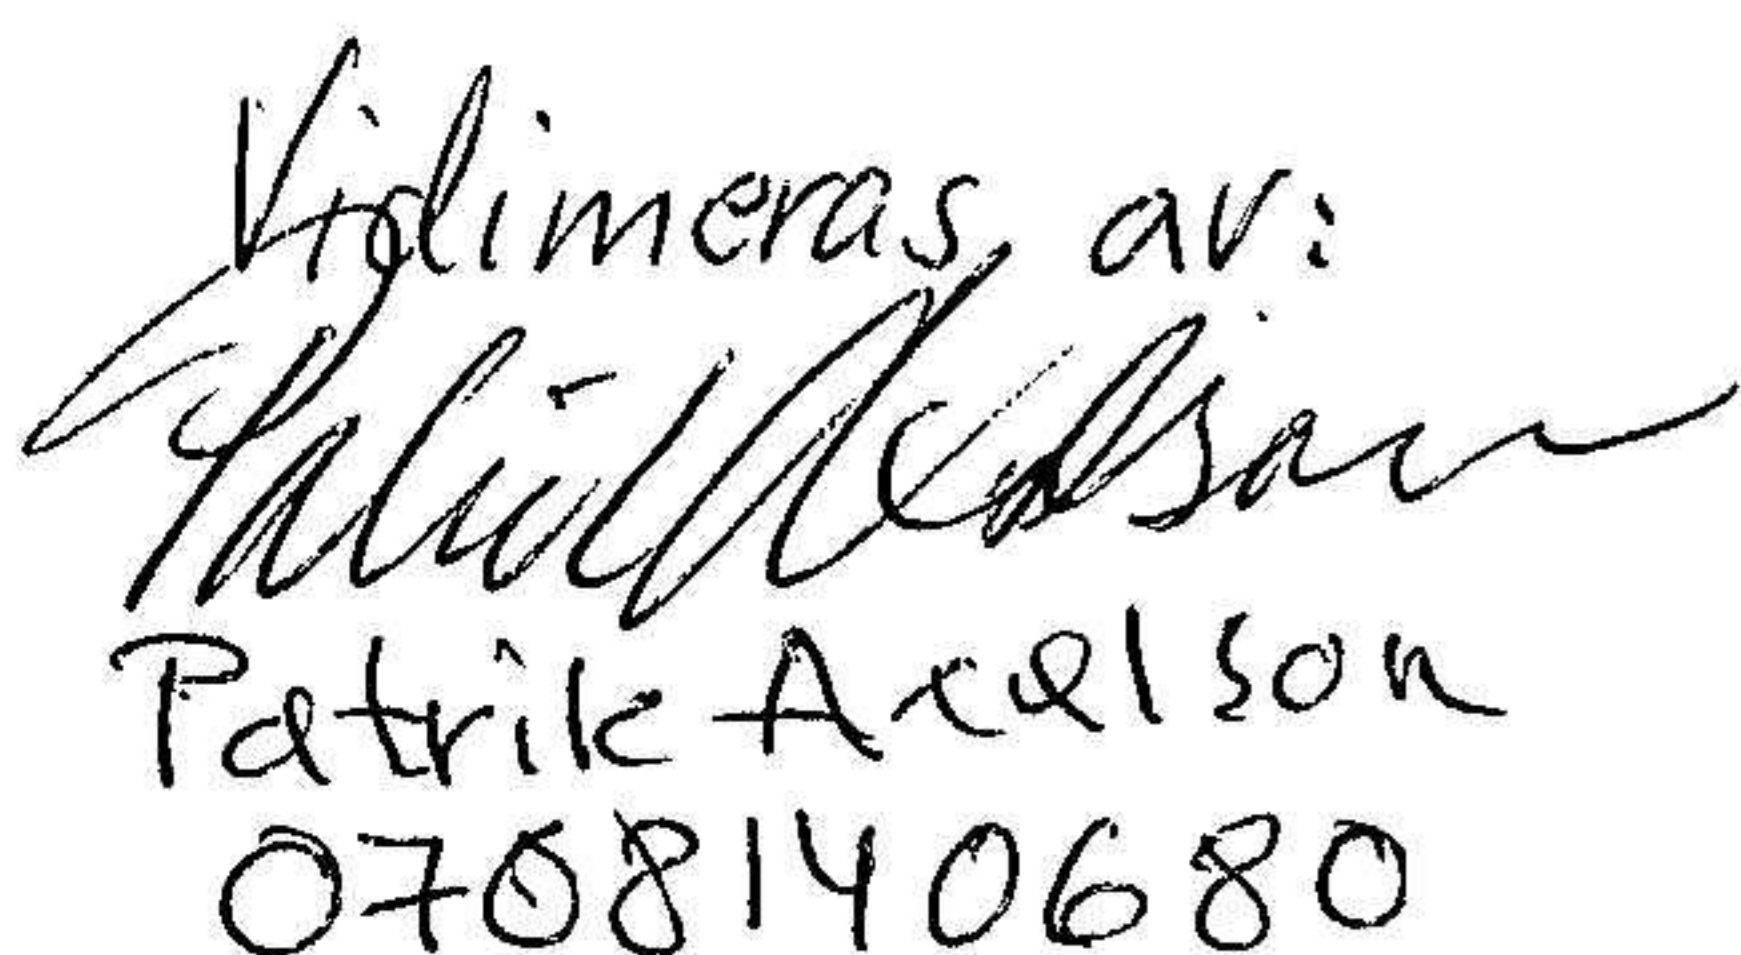 Vidimeras av:
Patrik Axelson
Patrik Axelson
0708140680